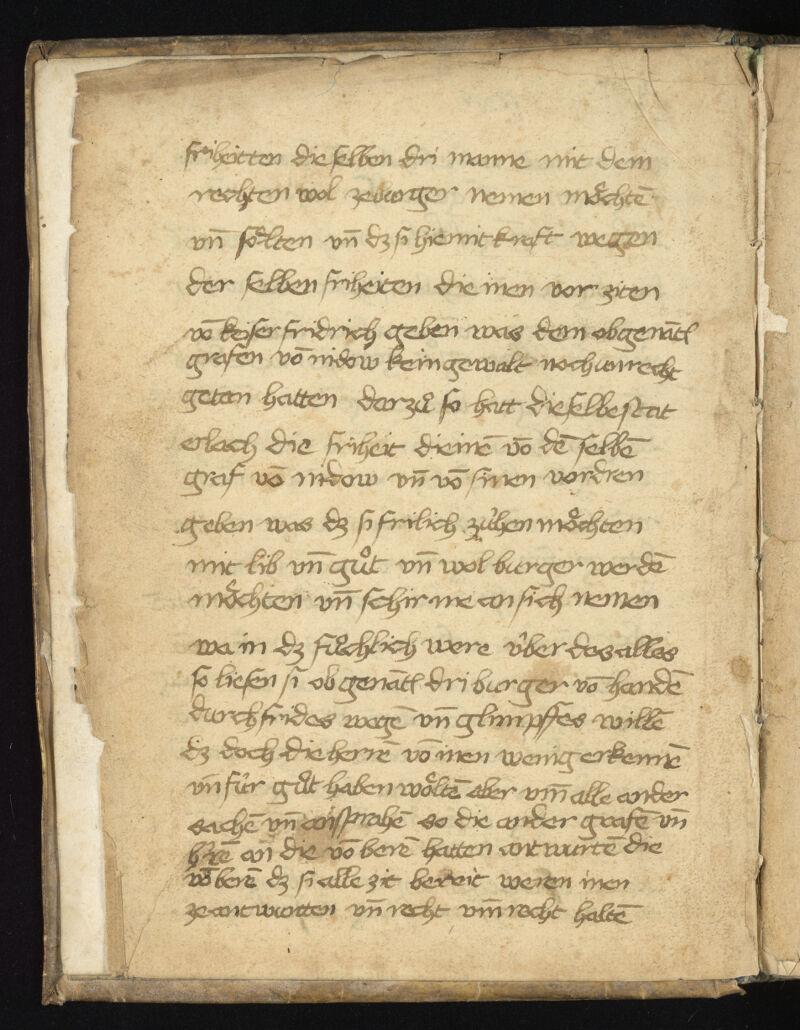 friheitten die selben dri manne mit dem
rechten wol ze burger nemen moͤchtē
vn̄ soͤlten vn̄ dz si hie mit kraft wegen
der selben friheiten die inen vor ziten
vō keiser fridrich geben was dem obgenātē
grafen vō nidow kein gewalt noch unrecht
getan hatten darzuͦ so hatt die selbe stat
erlach die friheit die inē vō dē selbē
graf vō nidow vn̄ vō sinen vordren
geben was dz si frilich zuͤhen moͤchten
mit lib vn̄ guͦt vn̄ wol burger werdē
moͤchten vn̄ schirme an sich nemen
wa in dz fuͦchlich were uͤber des alles
so liesen si obgenātē dri burger vō handē
durch frides wegē vn̄ glimpffes willē
dz doch die herrē vō inen wenig erkennē
vn̄ fuͤr guͦt haben woͤltē aber vm̄ alle ander
sachē vn̄ ansprahē so die ander grafē vn̄
hʼrē an die vō berē hatten antwurtē die
vō berē dz si alle zit bereit weren inen
ze antwurtten vn̄ recht vm̄ recht haltē